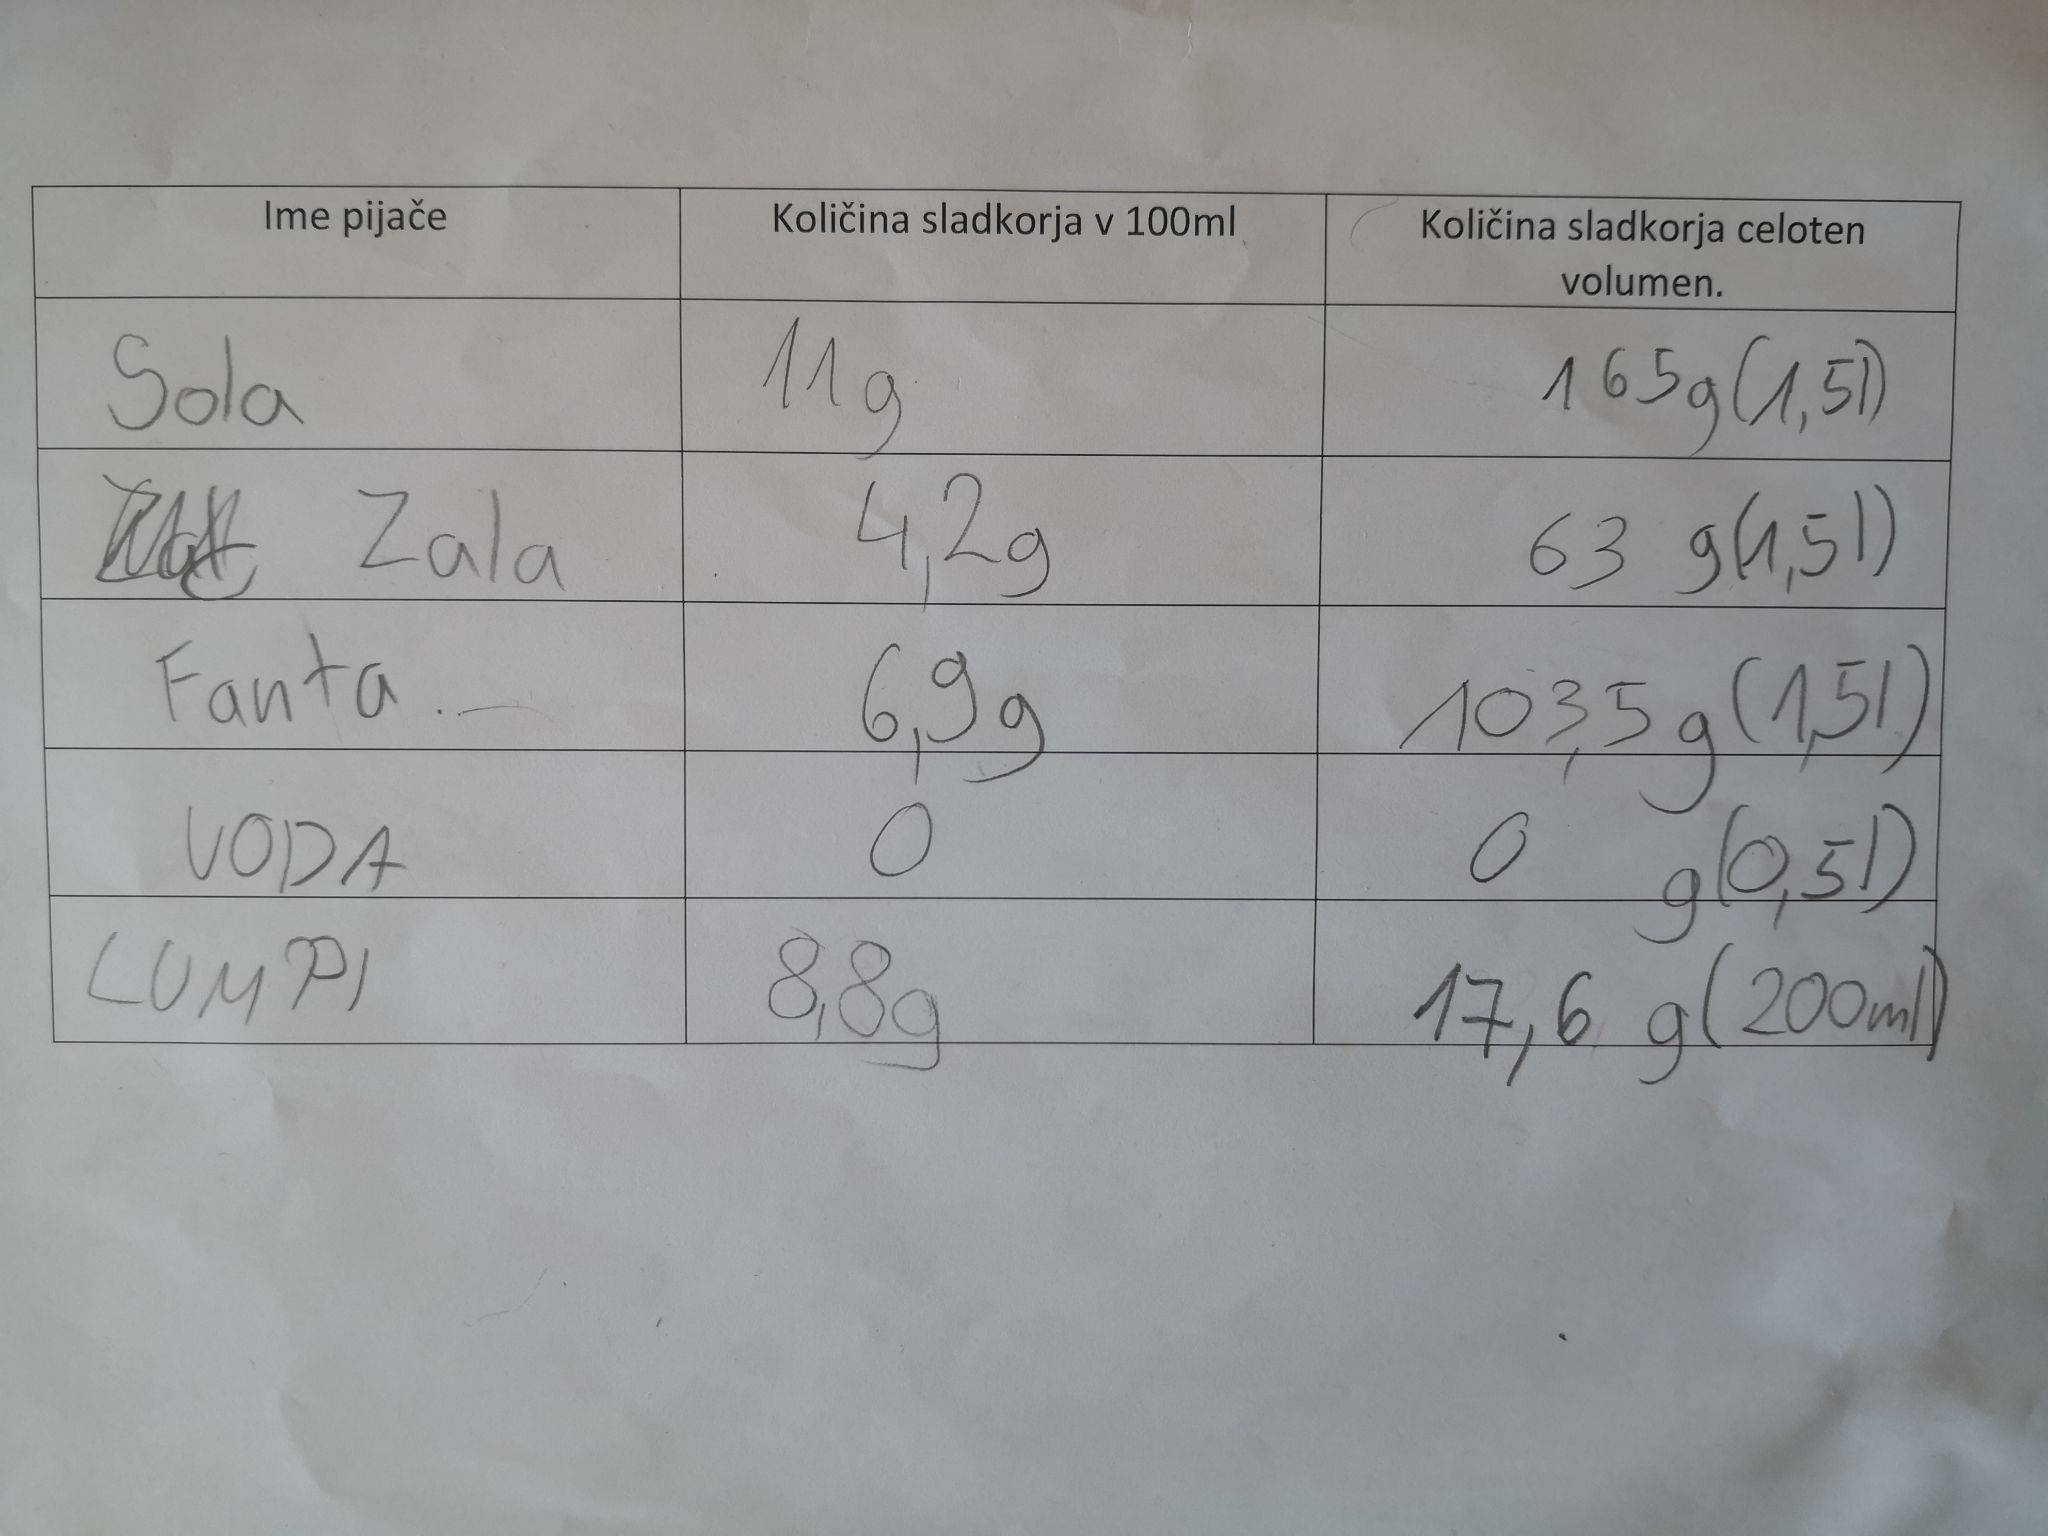 Ime pijače Količina sladkorja v 100ml Količina sladkorja celoten
volumen.
Sola 11g 165g(1,5l)
Zala 4,2g 63 g(1,5l)
Fanta 6,9g 103,5g(1,5l)
VODA 0 0 g(0,5l)
LUMPI 8,8g 17,6 g(200ml)